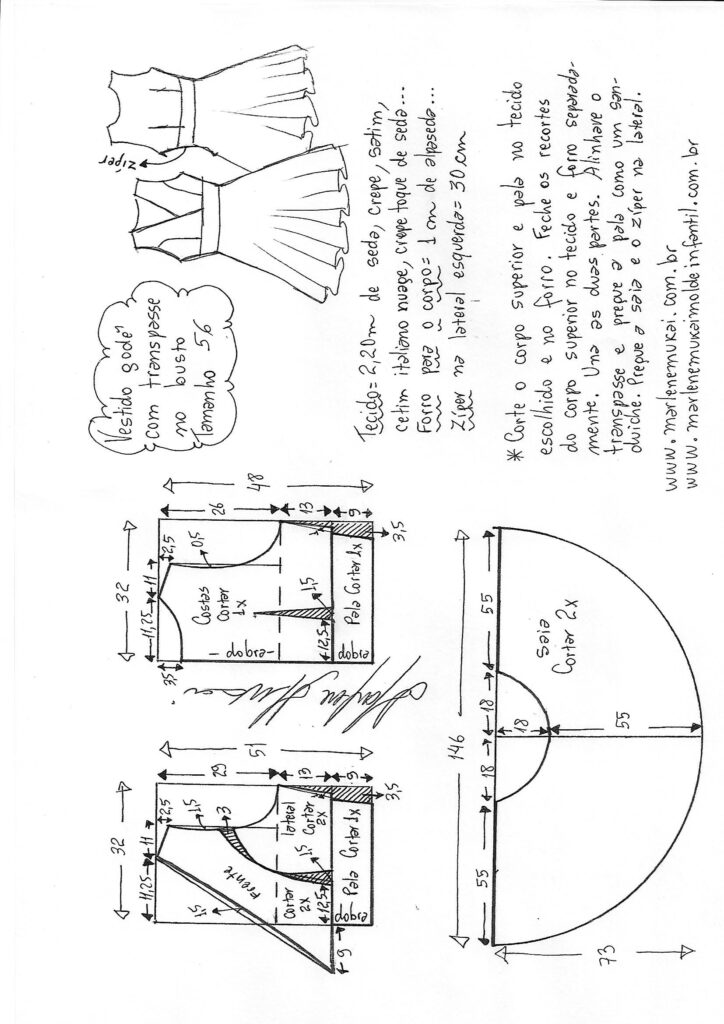 zíper
Vestido godê
com transpasse
no busto
Tamanho 56
Tecido = 2,20m de seda, crepe, satim,
cetim italiano nuage, crepe toque de seda...
Forro para o corpo = 1 cm de alpaseda...
Zíper na lateral esquerda = 30 cm
* Corte o corpo superior e pala no tecido
escolhido e no forro. Feche os recortes
do corpo superior no tecido e forro separada-
mente. Una as duas partes. Alinhave o
transpasse e pregue a pala como um san-
duiche. Pregue a saia e o zíper na lateral.
www.marlenemukai.com.br
www.marlenemukaimoldeinfantil.com.br
32
11,25
11
2,5
29
13
9
51
1,5
3
1,5
Frente
Cortar
2X
lateral
Cortar
2X
1,5
12,5
dobra
Pala Cortar 1x
3,5
9
32
11,25
11
2,5
26
13
9
48
3,5
0,5
Costas
Cortar
1X
-dobra-
1,5
12,5
dobra
Pala Cortar 1x
3,5
146
55
18
18
55
18
55
73
Saia
Cortar 2X